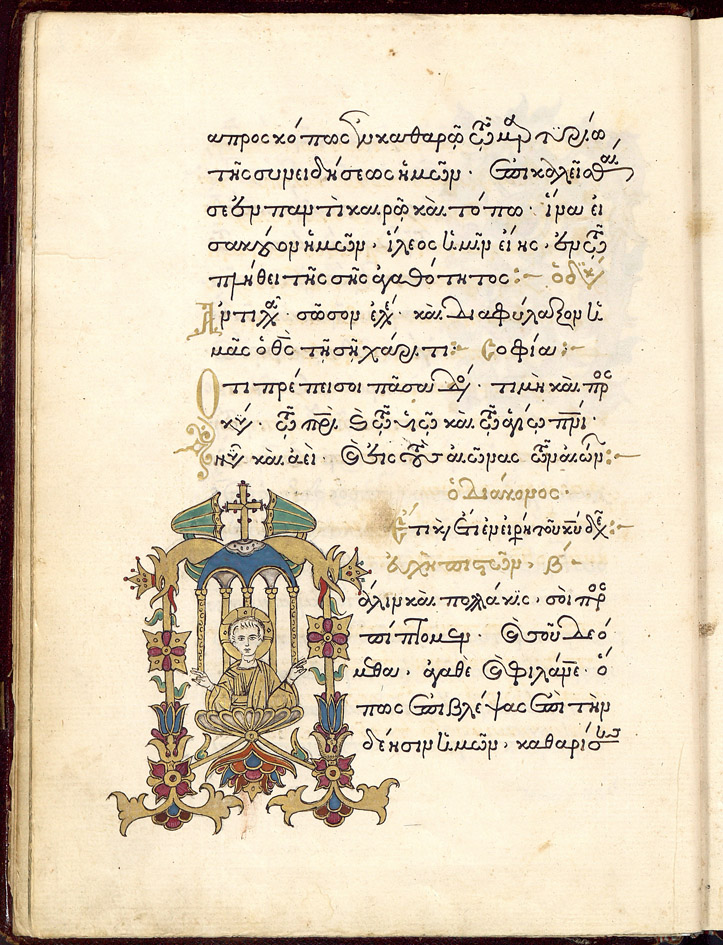 απροσκόπως ἐν καθαρῷ τῷ μαρτυρίῳ
τῆς συνειδήσεως ἡμῶν· ἐπικαλεῖσθαι
σε ἐν παντὶ καιρῷ καὶ τόπῳ· ἵνα εἰ
σακούων ἡμῶν, ἵλεος ἡμῖν εἴης, ἐν τῷ
πλήθει τῆς σῆς ἀγαθότητος:~ ὁ διάκ
Ἀντιλα· σῶσον ἐλέ· καὶ διαφύλαξον ἡ
μᾶς ὁ θς τῇ σῇ χάριτι:~ Σοφία:~
Ὅτι πρέπει σοι πᾶσα δό· τιμὴ καὶ πρὸς
κύ· τῷ πρι καὶ τῷ υἱῷ καὶ τῷ ἁγίῳ πνι·
νῦν καὶ ἀεὶ· καὶ εἰς τοὺς αἰῶνας τῶν αἰών:~
ὁ Διάκονος·
Ἔτι καὶ ἔτι ἐν εἰρή τοῦ κυ δε:~
εὐχὴ πιστῶν, β~
άλιν καὶ πολλάκις, σοὶ προσ
πίπτομεν· καὶ σοῦ δεό
μεθα, ἀγαθὲ καὶ φιλάνε· ὅ
πως ἐπιβλέψας ἐπὶ τὴν
δέησιν ἡμῶν, καθαρίσ